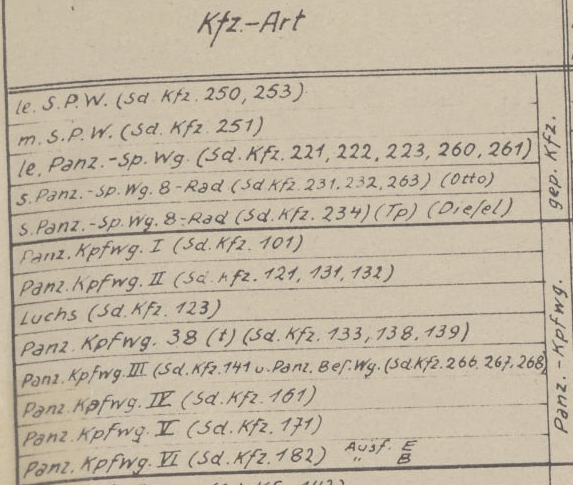 Kfz.-Art
le. S.P.W. (Sd. Kfz. 250, 253)
m. S.P.W. (Sd. Kfz. 251)
le. Panz.-Sp. Wg. (Sd. Kfz. 221, 222, 223, 260, 261)
s. Panz.-Sp. Wg. 8-Rad (Sd. Kfz. 231, 232, 263) (Otto)
s. Panz.-Sp. Wg. 8-Rad (Sd. Kfz. 234) (Tp) (Diesel)
gep. Kfz.
Panz. Kpfwg. I (Sd. Kfz. 101)
Panz. Kpfwg. II (Sd. Kfz. 121, 131, 132)
Luchs (Sd. Kfz. 123)
Panz. Kpfwg. 38 (t) (Sd. Kfz. 133, 138, 139)
Panz. Kpfwg. III (Sd. Kfz. 141 u. Panz. Bef. Wg. (Sd. Kfz. 266, 267, 268
Panz. Kpfwg. IV (Sd. Kfz. 161)
Panz. Kpfwg. V (Sd. Kfz. 171)
Panz. Kpfwg. VI (Sd. Kfz. 182) Ausf. E
" B
Panz.-Kpfwg.